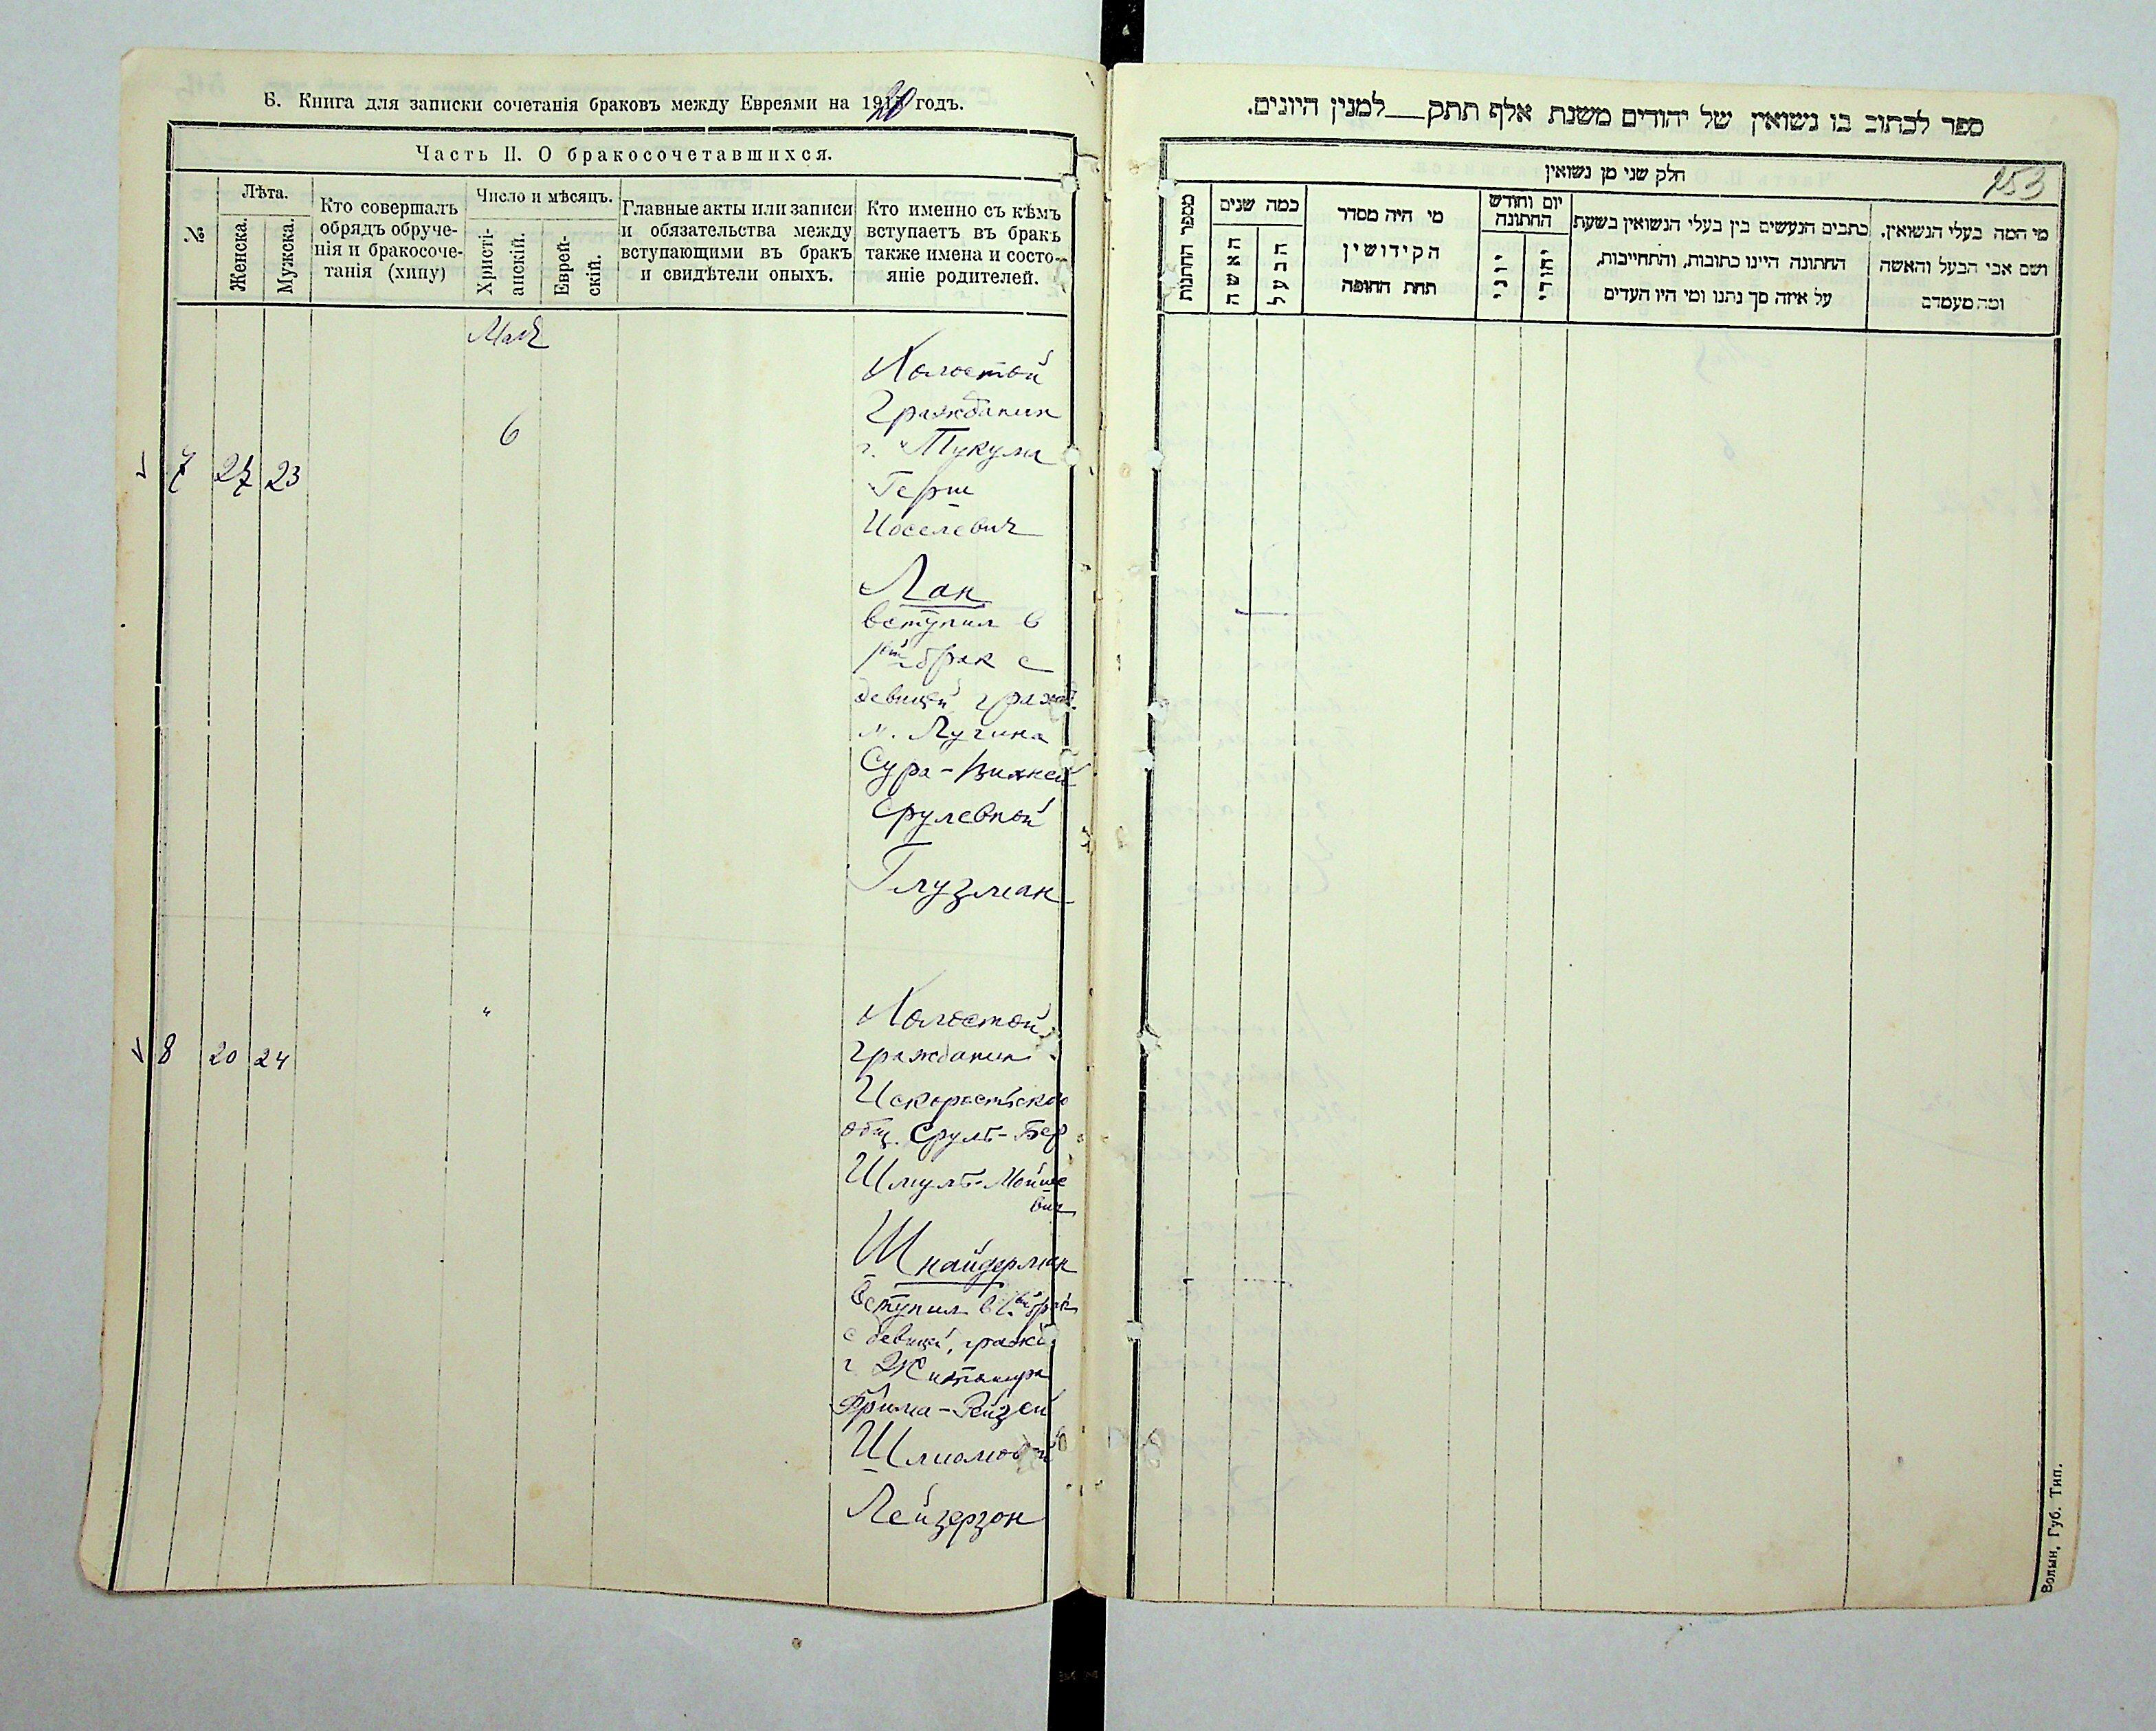 Б. Книга для записки сочетанія браковъ между Евреями на 1920 годъ.
Часть II. О бракосочетавшихся.
№
Лѣта.
Женска.
Мужска.
Кто совершалъ
обрядъ обруче-
нія и бракосоче-
танія (хипу)
Число и мѣсяцъ.
Христі-
анскій.
Еврей-
скій.
Главные акты или записи
и обязательства между
вступающими въ бракъ
и свидѣтели оныхъ.
Кто именно съ кѣмъ
вступаетъ въ бракъ
также имена и состо-
яніе родителей.
Май
6
7 27 23
Холостой
Гражданин
г. Тукума
Герш
Иоселевич
Лак
вступил в
1й брак с
девицей гражд.
м. Лугина
Сура-
Срулевной
Глузман
"
8 20 24
Холостой
гражданин
Искоростьского
общ. Сруль-Бер
Шмуль-Мойше
вич
Шнайдерман
вступил в 1й брак
с девицей, гражд.
г. Житомира
Фрима-Рейзей
Шлиомовой
Лейзерзон
ספר לכתוב בו נשואין של יהודים משנת אלף תתק___למנין היונים.
153
חלק שני מן נשואין
מספר החתנות
כמה שנים
האשה
הבעל
מי היה מסדר
הקידושין
תחת החופה
יום וחודש
החתונה
יוני
יהודי
כתבים הנעשים בין בעלי הנשואין בשעת
החתונה היינו כתובות, והתחייבות,
על איזה סך נתנו ומי היו העדים
מי המה בעלי הנשואין,
ושם אבי הבעל והאשה
ומה מעמדם
Волын. Губ. Тип.